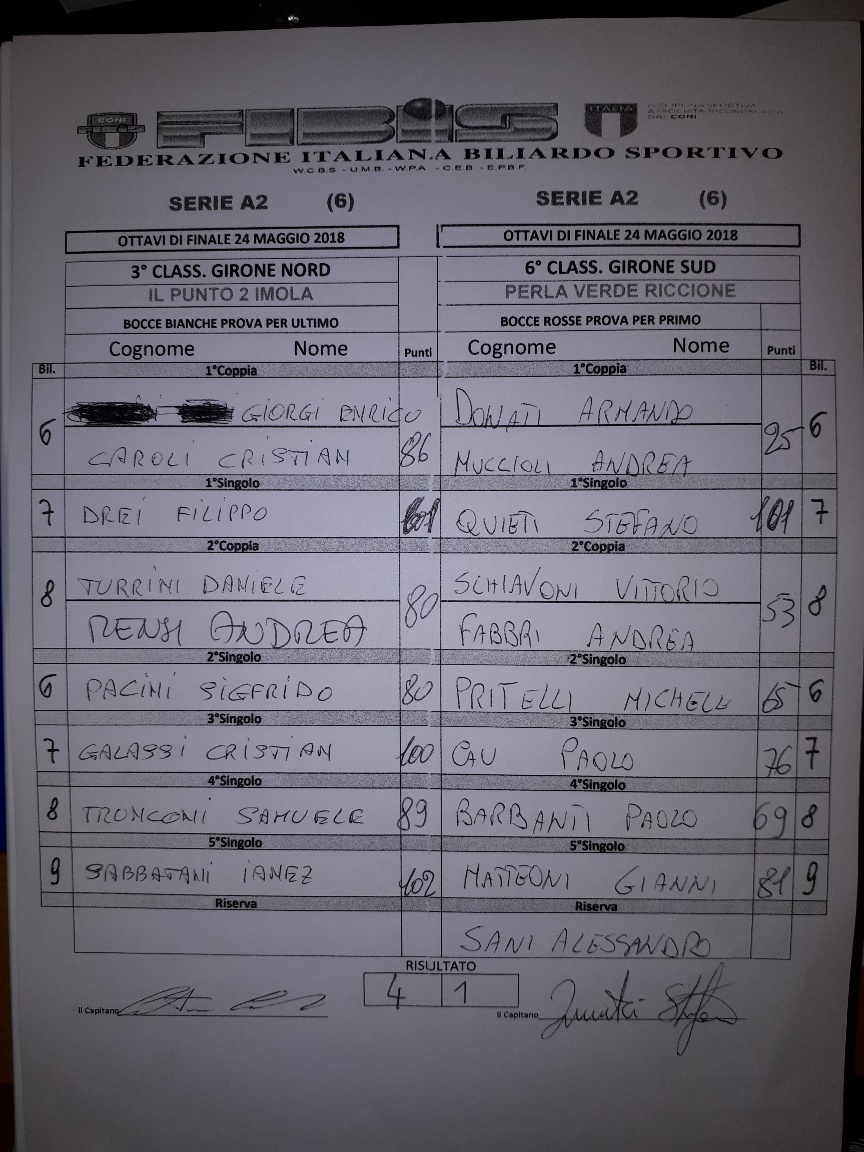 CONI FIBIS ITALIA DISCIPLINA SPORTIVA
ASSOCIATA RICONOSCIUTA
DAL CONI
FEDERAZIONE ITALIANA BILIARDO SPORTIVO
W.C.B.S. - U.M.B. - W.P.A. - C.E.B. - E.P.B.F.
SERIE A2 (6) SERIE A2 (6)
OTTAVI DI FINALE 24 MAGGIO 2018 OTTAVI DI FINALE 24 MAGGIO 2018
3° CLASS. GIRONE NORD 6° CLASS. GIRONE SUD
IL PUNTO 2 IMOLA PERLA VERDE RICCIONE
BOCCE BIANCHE PROVA PER ULTIMO BOCCE ROSSE PROVA PER PRIMO
Cognome Nome Punti Cognome Nome Punti
Bil. 1°Coppia 1°Coppia Bil.
GIORGI ENRICO DONATI ARMANDO
6 86 95 6
CAROLI CRISTIAN MUCCIOLI ANDREA
1°Singolo 1°Singolo
7 DREI FILIPPO QUIETI STEFANO 101 7
2°Coppia 2°Coppia
TURRINI DANIELE SCHIAVONI VITTORIO
8 80 53 8
RENSI ANDREA FABBRI ANDREA
2°Singolo 2°Singolo
6 PACINI SIGFRIDO 80 PRITELLI MICHELL 65 6
3°Singolo 3°Singolo
7 GALASSI CRISTIAN 100 CAU PAOLO 76 7
4°Singolo 4°Singolo
8 TRONCONI SAMUELE 89 BARBANTI PAOLO 69 8
5°Singolo 5°Singolo
9 SABBATANI IANEZ 102 MATTEONI GIANNI 81 9
Riserva Riserva
SANI ALESSANDRO
RISULTATO
4 1
Il Capitano Il Capitano